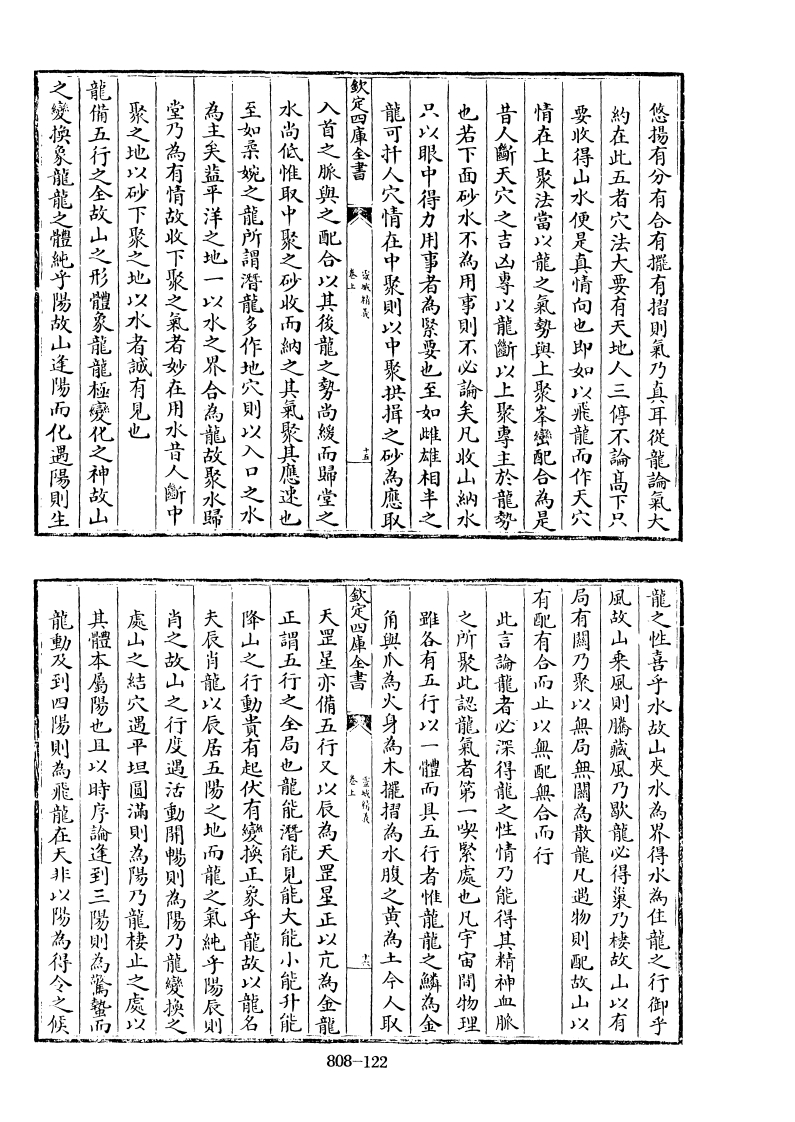 悠揚有分有合有擺有摺則氣乃真耳從龍論氣大
約在此五者穴法大要有天地人三停不論髙下只
要收得山水便是真情向也即如以飛龍而作天穴
情在上聚法當以龍之氣勢與上聚峯巒配合為是
昔人斷天穴之吉凶專以龍斷以上聚專主於龍勢
也若下面砂水不為用事則不必論矣凡收山納水
只以眼中得力用事者為緊要也至如雌雄相半之
龍可扦人穴情在中聚則以中聚拱揖之砂為應取
欽定四庫全書
靈城精義
卷上
十五
入首之脈與之配合以其後龍之勢尚緩而歸堂之
水尚低惟取中聚之砂收而納之其氣聚其應速也
至如柔婉之龍所謂潛龍多作地穴則以入口之水
為主矣葢平洋之地一以水之界合為龍故聚水歸
堂乃為有情故收下聚之氣者妙在用水昔人斷中
聚之地以砂下聚之地以水者誠有見也
龍備五行之全故山之形體象龍龍極變化之神故山
之變換象龍龍之體純乎陽故山逢陽而化遇陽則生
龍之性喜乎水故山夾水為界得水為住龍之行御乎
風故山乘風則騰藏風乃歇龍必得巢乃棲故山以有
局有關乃聚以無局無關為散龍凡遇物則配故山以
有配有合而止以無配無合而行
此言論龍者必深得龍之性情乃能得其精神血脈
之所聚此認龍氣者第一喫緊處也凡宇宙間物理
雖各有五行以一體而具五行者惟龍龍之鱗為金
角與爪為火身為木擺摺為水腹之黄為土今人取
欽定四庫全書
靈城精義
卷上
十六
天罡星亦備五行又以辰為天罡星正以亢為金龍
正謂五行之全局也龍能潛能見能大能小能升能
降山之行動貴有起伏有變換正象乎龍故以龍名
夫辰肖龍以辰居五陽之地而龍之氣純乎陽辰則
肖之故山之行度遇活動開暢則為陽乃龍變換之
處山之結穴遇平坦圓滿則為陽乃龍棲止之處以
其體本屬陽也且以時序論逢到三陽則為驚蟄而
龍動及到四陽則為飛龍在天非以陽為得令之候
808-122